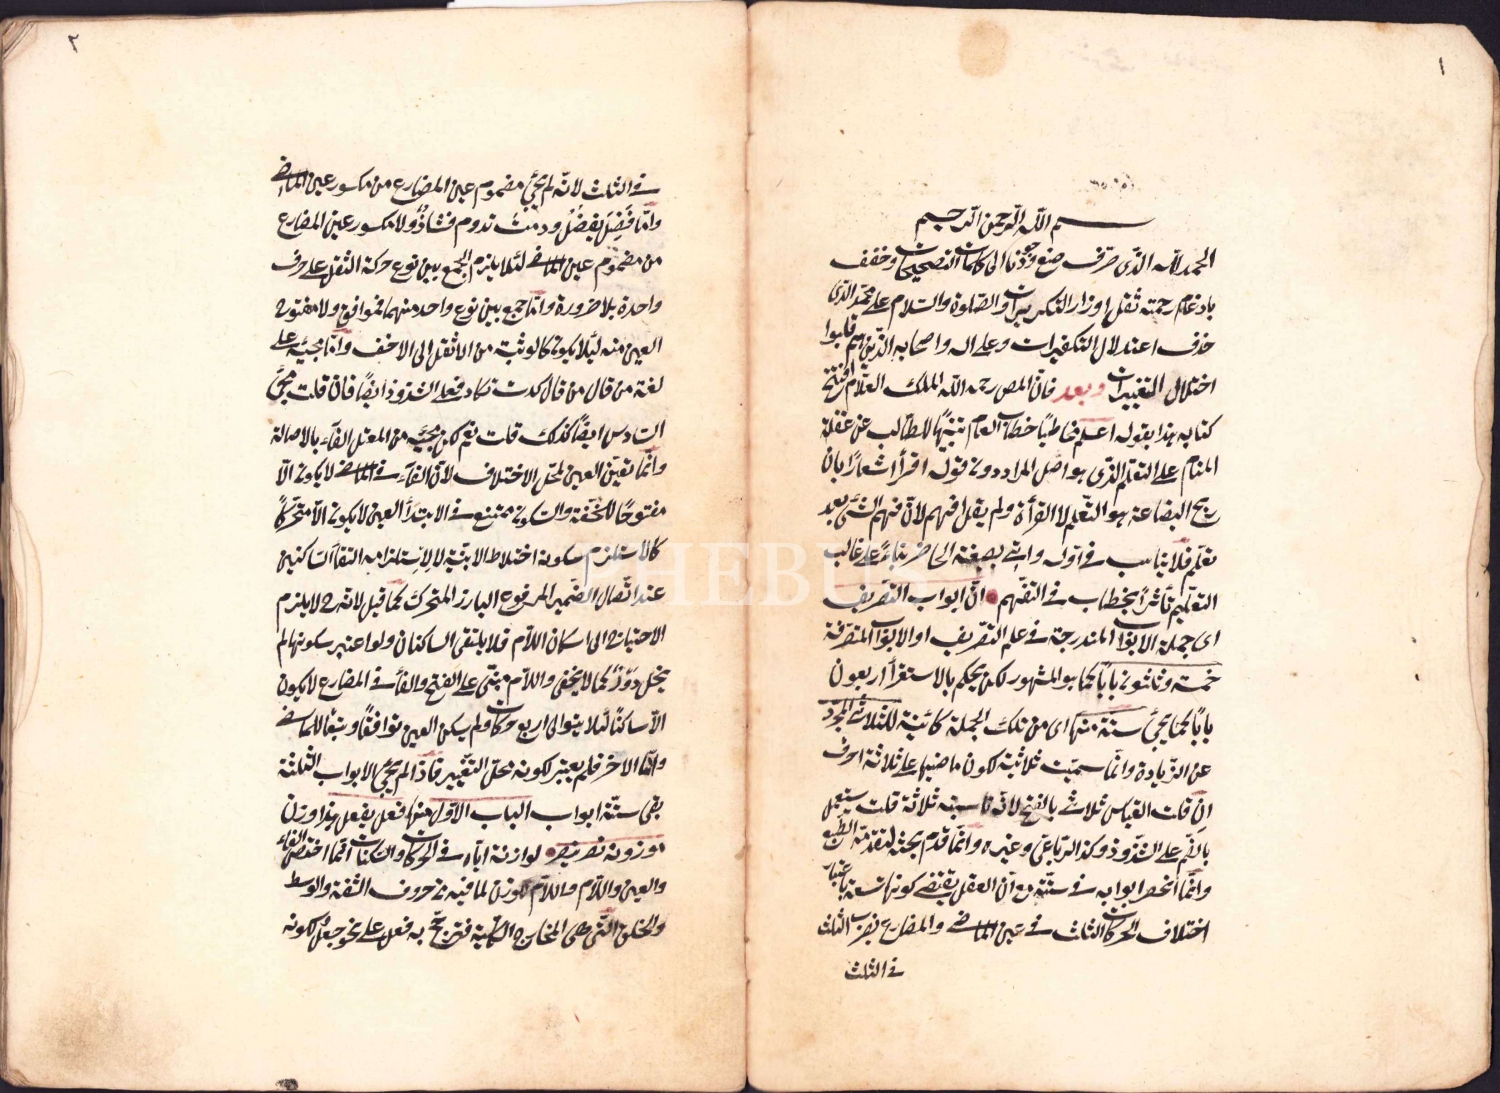 ١
بسم الله الرحمن الرحيم
الحمد لله الذى صرف صنع وجودنا الى كلمات التصحيحات وخفف
بادغام رحمته ثقل اوزار التكريرات والصلوة والسلام على محمد الذى
حذف اعتلال التكفيرات وعلى اله واصحابه الذين هم قلبوا
اختلال التغييرات وبعد فان المص رحمه الله الملك العلام افتتح
كتابه هذا بقوله اعلم خاطبا خطاب العام تنبيها للطالب عن غفلة
المنام على التعلم الذى هو اصل المراد دون قوله اقرأ اشعارا بان
ربح البضاعة هو التعلم لا القرأة ولم يقل افهم لان فهم الشئ بعد
تعلمه فلا يناسب فى اوله واتى بصيغة الحاضر بناء على غالب
التعليم تأثرا بخطاب فى التفهم ان ابواب التصريف
اى جملة الابواب المندرجة فى علم التصريف او الابواب المتصرفة
خمسة وثلثون بابا كما هو المشهور لكن يحكم بالاستقرأ اربعون
بابا كما يجئ ستة منها اى من تلك الجملة كائنة للثلاثى المجرد
عن الزيادة وانما سميت ثلاثية لكون ماضيها على ثلاثة احرف
ان قلت القياس ثلاثى بالفتح لانه نسبة ثلاثة قلت يستعمل
بالضم على الشذوذ وكذا الرباعى وغيره وانما قدم بحثه لتقدمه الطبع
وانما انحصر ابوابه فى ستة مع ان العقل يقتضى كونها تسعة باعتبار
اختلاف الحركات الثلث فى عين الماضى والمضارع بضرب الثلث
فى الثلث
٢
فى الثلث لانه لم يجئ مضموم عين المضارع من مكسور عين الماضى
واما فضل يفضل ودمت تدوم فشاذ ولا مكسور عين المضارع
من مضموم عين الماضى لئلا يلزم الجمع بين نوع حركة الثقل على حرف
واحدة بلا ضرورة وانما جمع بين نوع واحد منهما لموافق ولا مفتوح
العين منه لئلا يكون كالوثبة من الاثقل الى الاخف واما مجيئه على
لغة من قال من قال كدت تكاد فعلى الشذوذ ايضا فان قلت مجئ
السادس ايضا كذلك قلت نعم لكن مجيئه من المعتل الفاء بالاصالة
وانما تعين العين لمحل الاختلاف لان الفاء فى الماضى لا يكون الا
مفتوحا للخفة والسكون ممتنع فى الابتدأ العين لا يكون الا متحركا
كالاستلزم سكونه اختلاط الابنية لا لاستلزامه التقأ الساكنين
عند اتصال الضمير المرفوع البارز المتحرك كما قيل لانه ح لا يلزم
الاحتياج الى اسكان اللام فلا يلتقى الساكنان ولو اعتبر سكونها لم
يخل دور كما لا يخفى واللام مبنى على الفتح والفأ فى المضارع لا يكون
الا ساكنا لئلا يتوالى اربع حركات ولم يسكن العين توافقا وتبعا للماضى
واما الاخر فلم يعتبر لكونه محل التغيير فاذا لم يجئ الابواب الثلثة
بقى ستة ابواب الباب الاول منها فعل يفعل هذا وزن
موزونه نصر ينصر لموازنة اياه فى الحركات والسكنات انما اختص الفاء
والعين واللام للوزن لما فيه من حروف الشفة والوسط
والحلق التى هى المخارج الكلية فترجح به فعل على نحو جعل لكونه